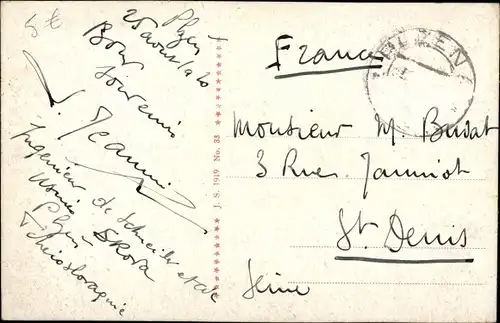 5 €
Plzen
25 août 1920
Bon
Souvenir
Jeannin
Ingénieur de Schneider et de
Usines Skoda
Plzen
Tchécoslovaquie
J. S. 1919 No. 33
PLZEN
France
Monsieur M Budat
3 Rue Jannot
St Denis
Seine